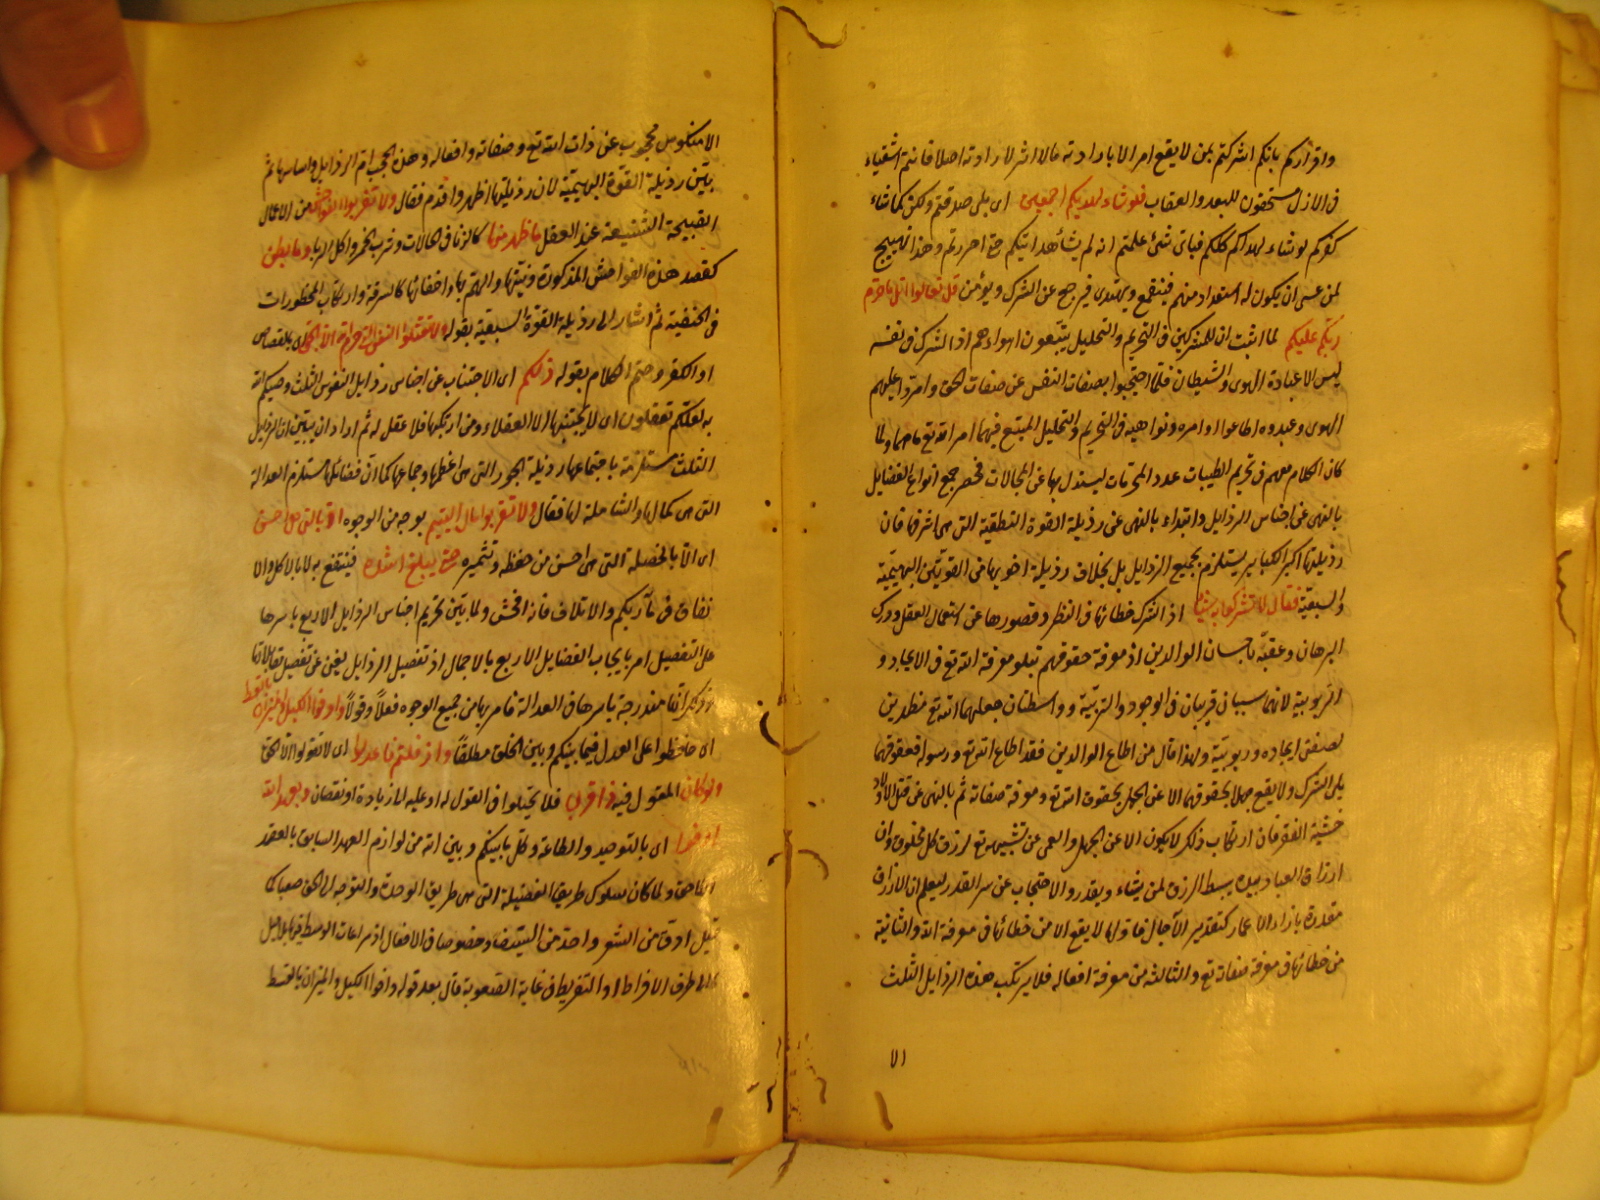 واقراركم بانكم اشركتم بمن لا يقع امر الا بارادته مالا اثر لارادته اصلا فانتم اشقياء
فى الازل مستحقون للبعد والعقاب فلو شاء لهديكم اجمعين اى بلى صدقتم ولكن كما شاء
كفركم لو شاء لهداكم كلكم فباى شئ علمتم انه لم يشأ هدايتكم حتى اصررتم وهذا تهييج
لمن عسى ان يكون له استعداد منهم فينقمع ويهتدى فيرجع عن الشرك ويؤمن قل تعالوا اتل ما حرم
ربكم عليكم لما اثبت ان للمشركين فى التحريم والتحليل يتبعون اهواءهم اذ الشرك فى نفسه
ليس الا عبادة الهوى والشيطان فلما احتجبوا بصفات النفس عن صفات الحق وامر عليهم
الهوى وعبدوه اطاعوا اوامره ونواهيه فى التحريم والتحليل المتبع فيهما امر الله تع ما هما ولما
كان الكلام معهم فى تحريم الطيبات عدد المحرمات ليستدل بها عن المحالات فحصر جميع انواع الفضايل
بالنهى عن اجناس الرذايل وابتداء بالنهى عن رذيلة القوة النطقية التى هى اشرفها فان
رذيلتها اكبر الكباير يستلزم بجميع الرذايل بل بخلاف رذيلة اخويها من القوتين البهيمية
والسبعية فقال لا تشركوا به شيئا اذ الشرك خطائها فى النظر وقصورها عن استعمال العقل ودرك
البرهان وعقبه باحسان الوالدين اذ معرفة حقوقهم تتلو معرفة الله تع فى الايجاد و
الربوبية لانهما سببان قريبان فى الوجود والتربية وواسطتان جعلهما الله تع مظهرين
لصفتى ايجاده وربوبيته ولهذا قال من اطاع الوالدين فقد اطاع الله تع ورسوله فعقوقهما
يلى الشرك ولا يقع جهلا بحقوقهما الا عن الجهل بحقوق الله تع ومعرفة صفاته ثم بالنهى عن قتل الاولاد
خشية الفقر فان ارتكاب ذلك لا يكون الا عن الجهل والعمى عن تسبيبه تع لرزق كل مخلوق وان
ارزاق العباد بيده يبسط الرزق لمن يشاء ويقدر والاحتجاب عن سر القدر ليعلم ان الارزاق
مقدرة بازاء الاعمار كتقدير الآجال فاولها لا يقع الا من خطائها فى معرفة الله والثانية
من خطائها فى معرفة صفاته تع والثالثة من معرفة افعاله فلا يرتكب هذه الرذايل الثلث
الا
الا منكوس محجوب عن ذات الله تع وصفاته وافعاله وهذه الحجب ام الرذايل واساسها ثم
بين رذيلة القوة البهيمية لان رذيلتها اظهر واقدم فقال ولا تقربوا الفواحش من الاعمال
القبيحة الشنيعة عند العقل ما ظهر منها كالزنا فى الحالات وشرب الخمر واكل الربا وما بطن
كقصد هذه الفواحش المذكورة ونيتها والهم بها واخفائها كالسرقة وارتكاب المحظورات
فى الخفية ثم اشار الى رذيلة القوة السبعية بقوله ولا تقتلوا النفس التى حرم الله الا بالحق اى بالقصاص
او الكفر وختم الكلام بقوله ذلكم اى الاجتناب عن اجناس رذايل النفوس الثلث وصيكم الله
به لعلكم تعقلون اى لا يجتنبها الا العقلاء ومن ارتكبها فلا عقل له ثم اراد ان يبين ان الرذايل
الثلث مستلزمة باجتماعها رذيلة الجور التى هى اعظمها وجماعها كما ان فضائلها تستلزم العدالة
التى هى كمالها والشاملة لها فقال ولا تقربوا مال اليتيم بوجه من الوجوه الا بالتى هى احسن
اى الا بالخصلة التى هى احسن من حفظه وتثميره حتى يبلغ اشده فينتفع به لا بالاكل والا
نفاق فى مآربكم والاتلاف فانه افحش ولما بين تحريم اجناس الرذايل الاربع باسرها
على التفصيل امر بايجاب الفضايل الاربع بالاجمال اذ تفصيل الرذايل يغنى عن تفصيل مقابلاتها
وذكر انها مندرجة باسرها فى العدالة فامر بها من جميع الوجوه فعلا وقولا واوفوا الكيل والميزان بالقسط
اى حافظوا على العدل فيما بينكم وبين الخلق مطلقا واذا قلتم فاعدلوا اى لا تقولوا الا الحق
ولو كان المقول فيه ذا قربى فلا تميلوا فى القول له او عليه الى زيادة او نقصان وبعهد الله
اوفوا اى بالتوحيد والطاعة وكل ما بينكم وبين الله من لوازم العهد السابق بالعقد
اللاحق ولما كان سلوك طريق الفضيلة التى هى طريق الوحدة والتوجه الى الحق صعبا كما
قيل ادق من الشعر واحد من السيف وخصوصا فى الافعال اذ مراعات الوسط فيها بلا ميل
الى طرف الافراط او التفريط فى غاية الصعوبة قال بعد قوله واوفوا الكيل والميزان بالقسط